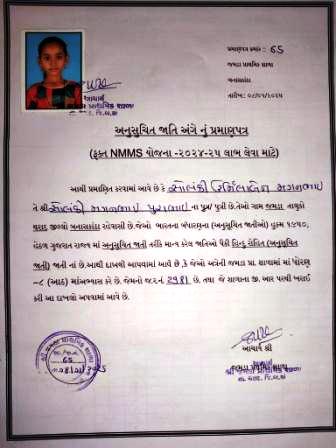 પ્રમાણપત્ર ક્રમાંક : 65
જમડા પ્રાથમિક શાળા
બનાસકાંઠા
તારીખ:
આચાર્ય
અનુસુચિત જાતિ અંગે નું પ્રમાણપત્ર
(ફક્ત NMMS યોજના -૨૦૨૪-૨૫ લાભ લેવા માટે)
આથી પ્રમાણિત કરવામાં આવે છે કે સોલંકી મગનભાઇ
તે શ્રી સોલંકી મગનભાઇ ના પુત્ર/ પુત્રી છે.તેઓ ગામ જમડા તાલુકો
થરાદ જીલ્લો બનાસકાંઠા રહેવાસી છે.જેઓ ભારતના બંધારણના (અનુસુચિત જાતીઓ) હુકમ ૧૯૫૦,
હેઠળ ગુજરાત રાજ્ય માં અનુસુચિત જાતી તરીકે માન્ય કરેલ જાતિઓ પૈકી હિન્દુ રોહિત (અનુસુચિત
જાતી) જાતી નાં છે.આથી દાખલો આપવામાં આવે છે કે જેઓ અત્રેની જમડા પ્રા. શાળામાં માં ધોરણ
-૮ (આઠ) માંઅભ્યાસ કરે છે. જેમનો જી.ર.નં. 2981 છે. તથા જે શાળાના જી. આર પરથી ખરાઈ
કરી આ દાખલો આપવામાં આવે છે.
આચાર્ય શ્રી
શ્રી જમડા પ્રાથમિક શાળા
65